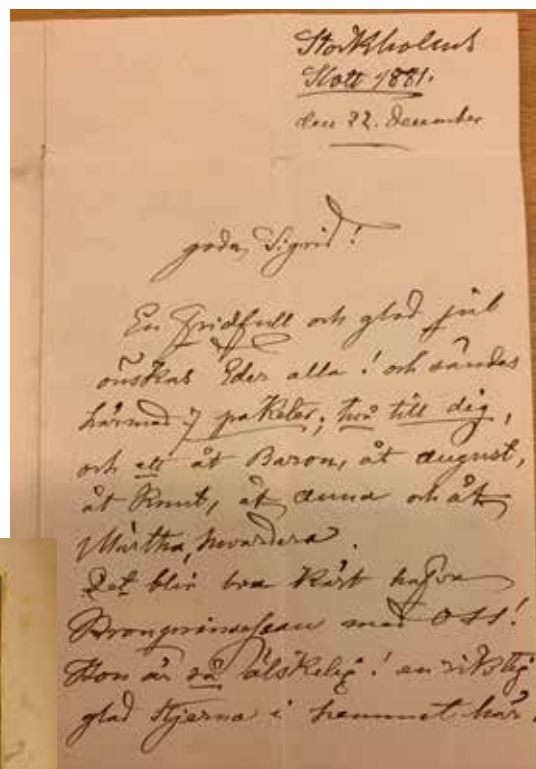 Stockholms
Slott 1881.
den 22. December
goda, Sigrid!
En fridfull och glad jul
önskas Eder alla! och sändes
härmed 7 paketer; två till dig,
och ett åt Baron, åt august,
åt Knut, åt anna och åt
Märtha, hvardera.
Det blir bra kärt hafva
Kronprinsessan med oss!
Hon är så älskelig! en riktig
glad stjerna i hemmet här.